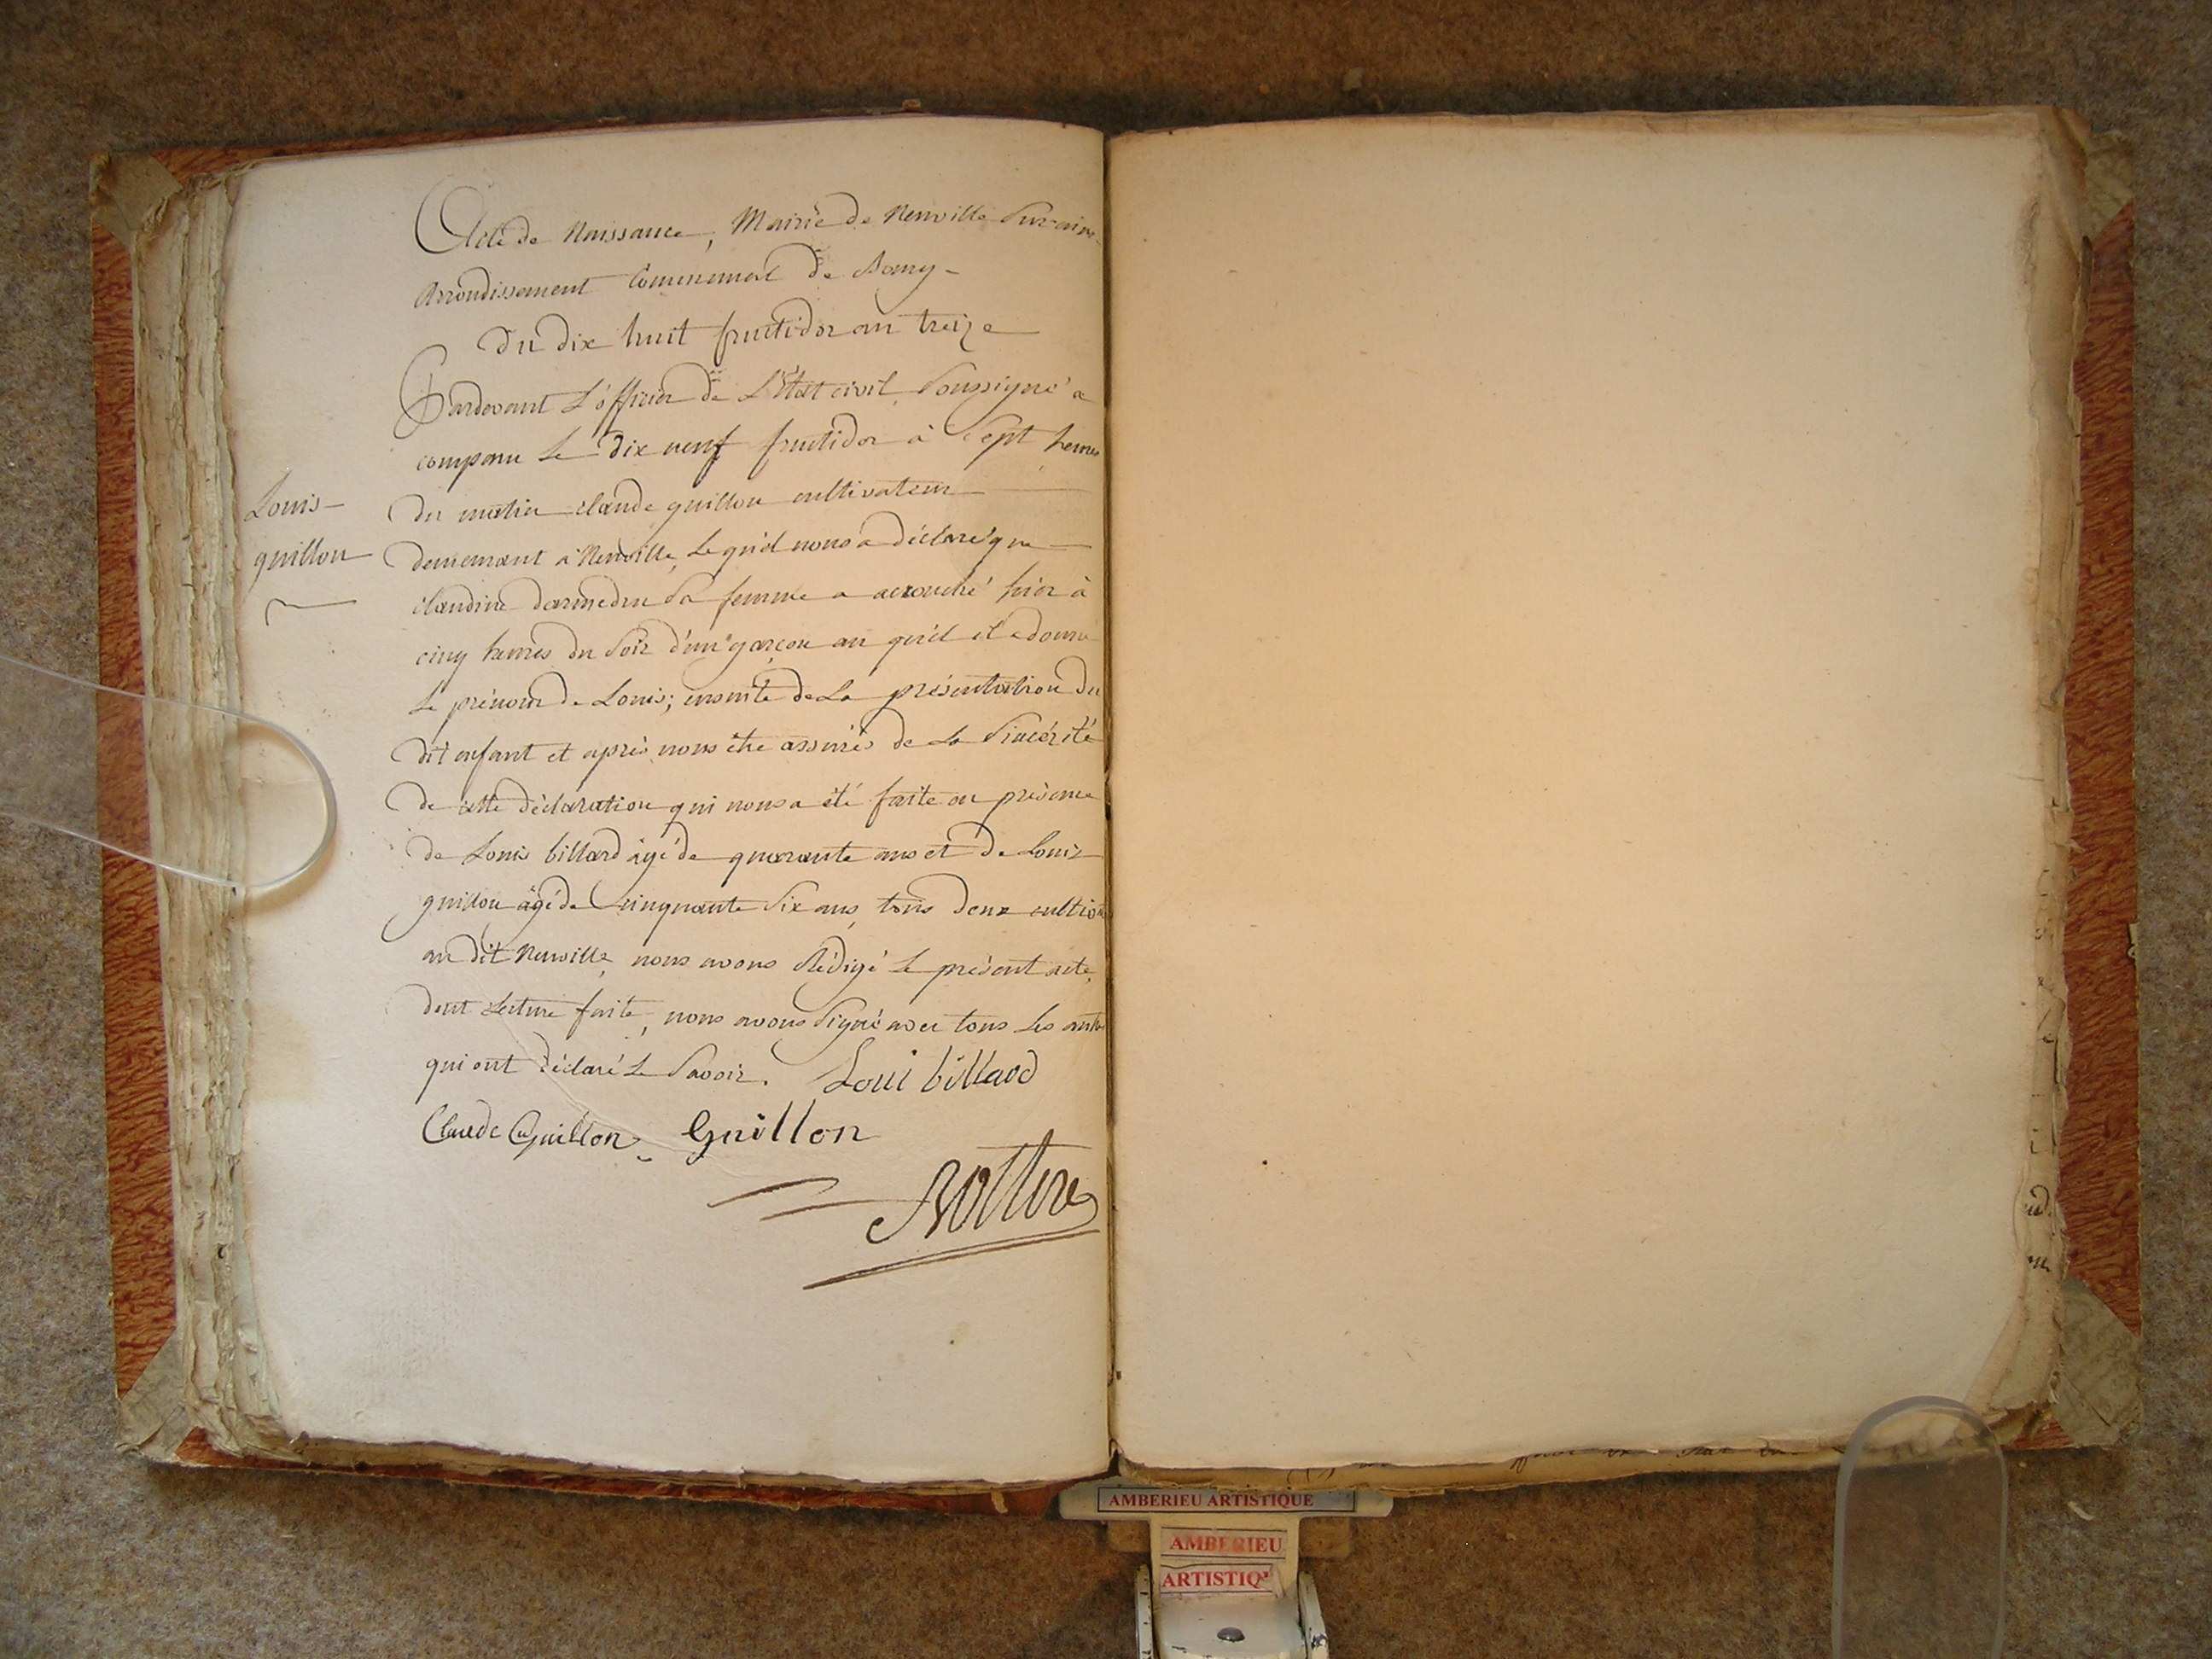 Acte de Naissance, Mairie de Neuville Sur ain
Arrondissement Communal de Bourg
Du dix huit fructidor an treize
Pardevant L'officier de L'Etat civil Soussigné a
comparu le dix neuf fructidor à Sept heures
Louis
guillon
du matin claude guillon cultivateur
demeurant à Neuville, Lequel nous a déclaré que
claudine darmedru Sa femme a accouché hier à
cinq heures du Soir d'un garçon au quel il a donné
le prénom de Louis; ensuite de La présentation du
dit enfant et après nous être assurés de la Sincérité
de cette déclaration qui nous a été faite en présence
de Louis billard âgé de quarante ans et de Louis
guillon âgé de Cinquante Six ans, tous deux cultiv
au dit Neuville, nous avons Rédigé le présent acte,
dont lecture faite, nous avons Signé avec tous les
qui ont déclaré le Savoir. Loui billard
Claude Guillon Guillon
AMBERIEU ARTISTIQUE
AMBERIEU
ARTISTIQ